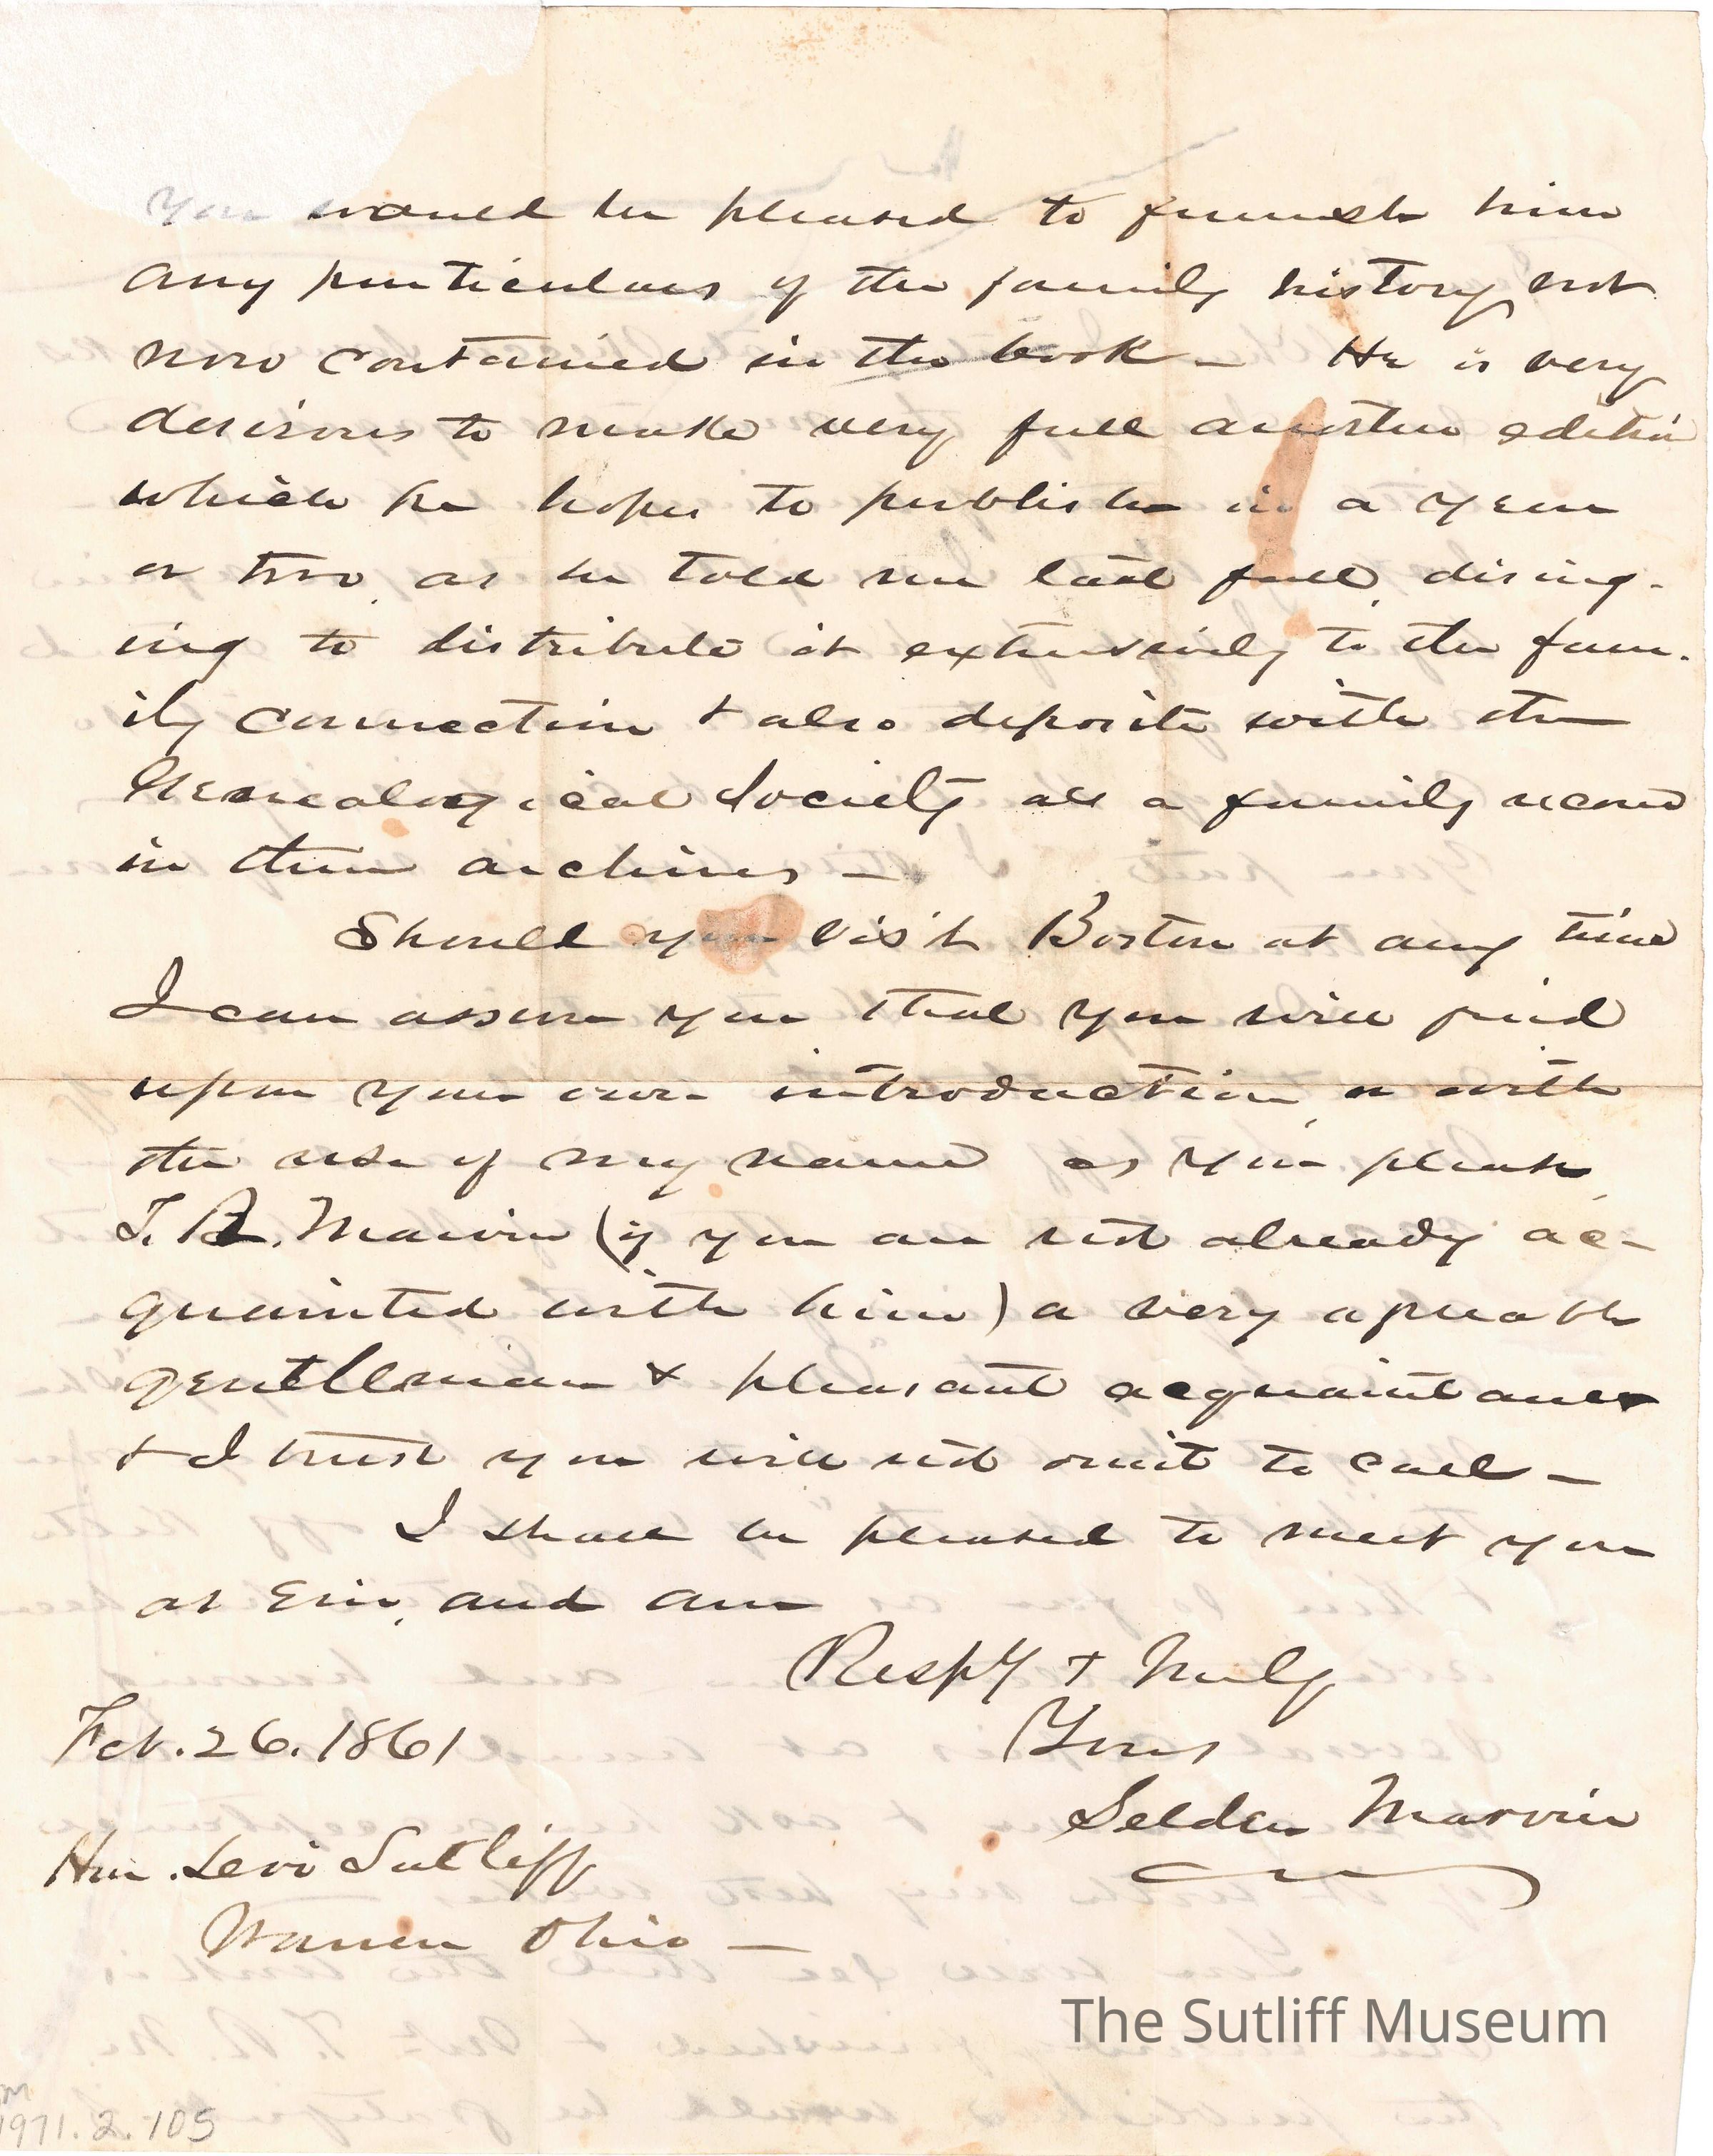 You would be pleased to furnish him
any particulars of the family history not
now contained in the book – He is very
desirous to make very full another edition
which he hopes to publish in a year
or two, as he told me last fall, desing-
ing to distribute it extensively to the fam-
ily connection & also deposite with the
Genealogical Society as a family record
in their archives –
Should you visit Boston at any time
I can assure you that you will find
upon your own introduction, or with
the use of my name as you please,
T. R. Marvin (if you are not already ac-
quainted with him) a very agreeable
gentleman & pleasant acquaintance
& I trust you will not omit to call –
I shall be pleased to meet you
at Erie, and am
Respy & truly
Yours
Selden Marvin
Feb. 26. 1861
Hon. Levi Sutliff
Warren Ohio –
The Sutliff Museum
M
1971.2.105